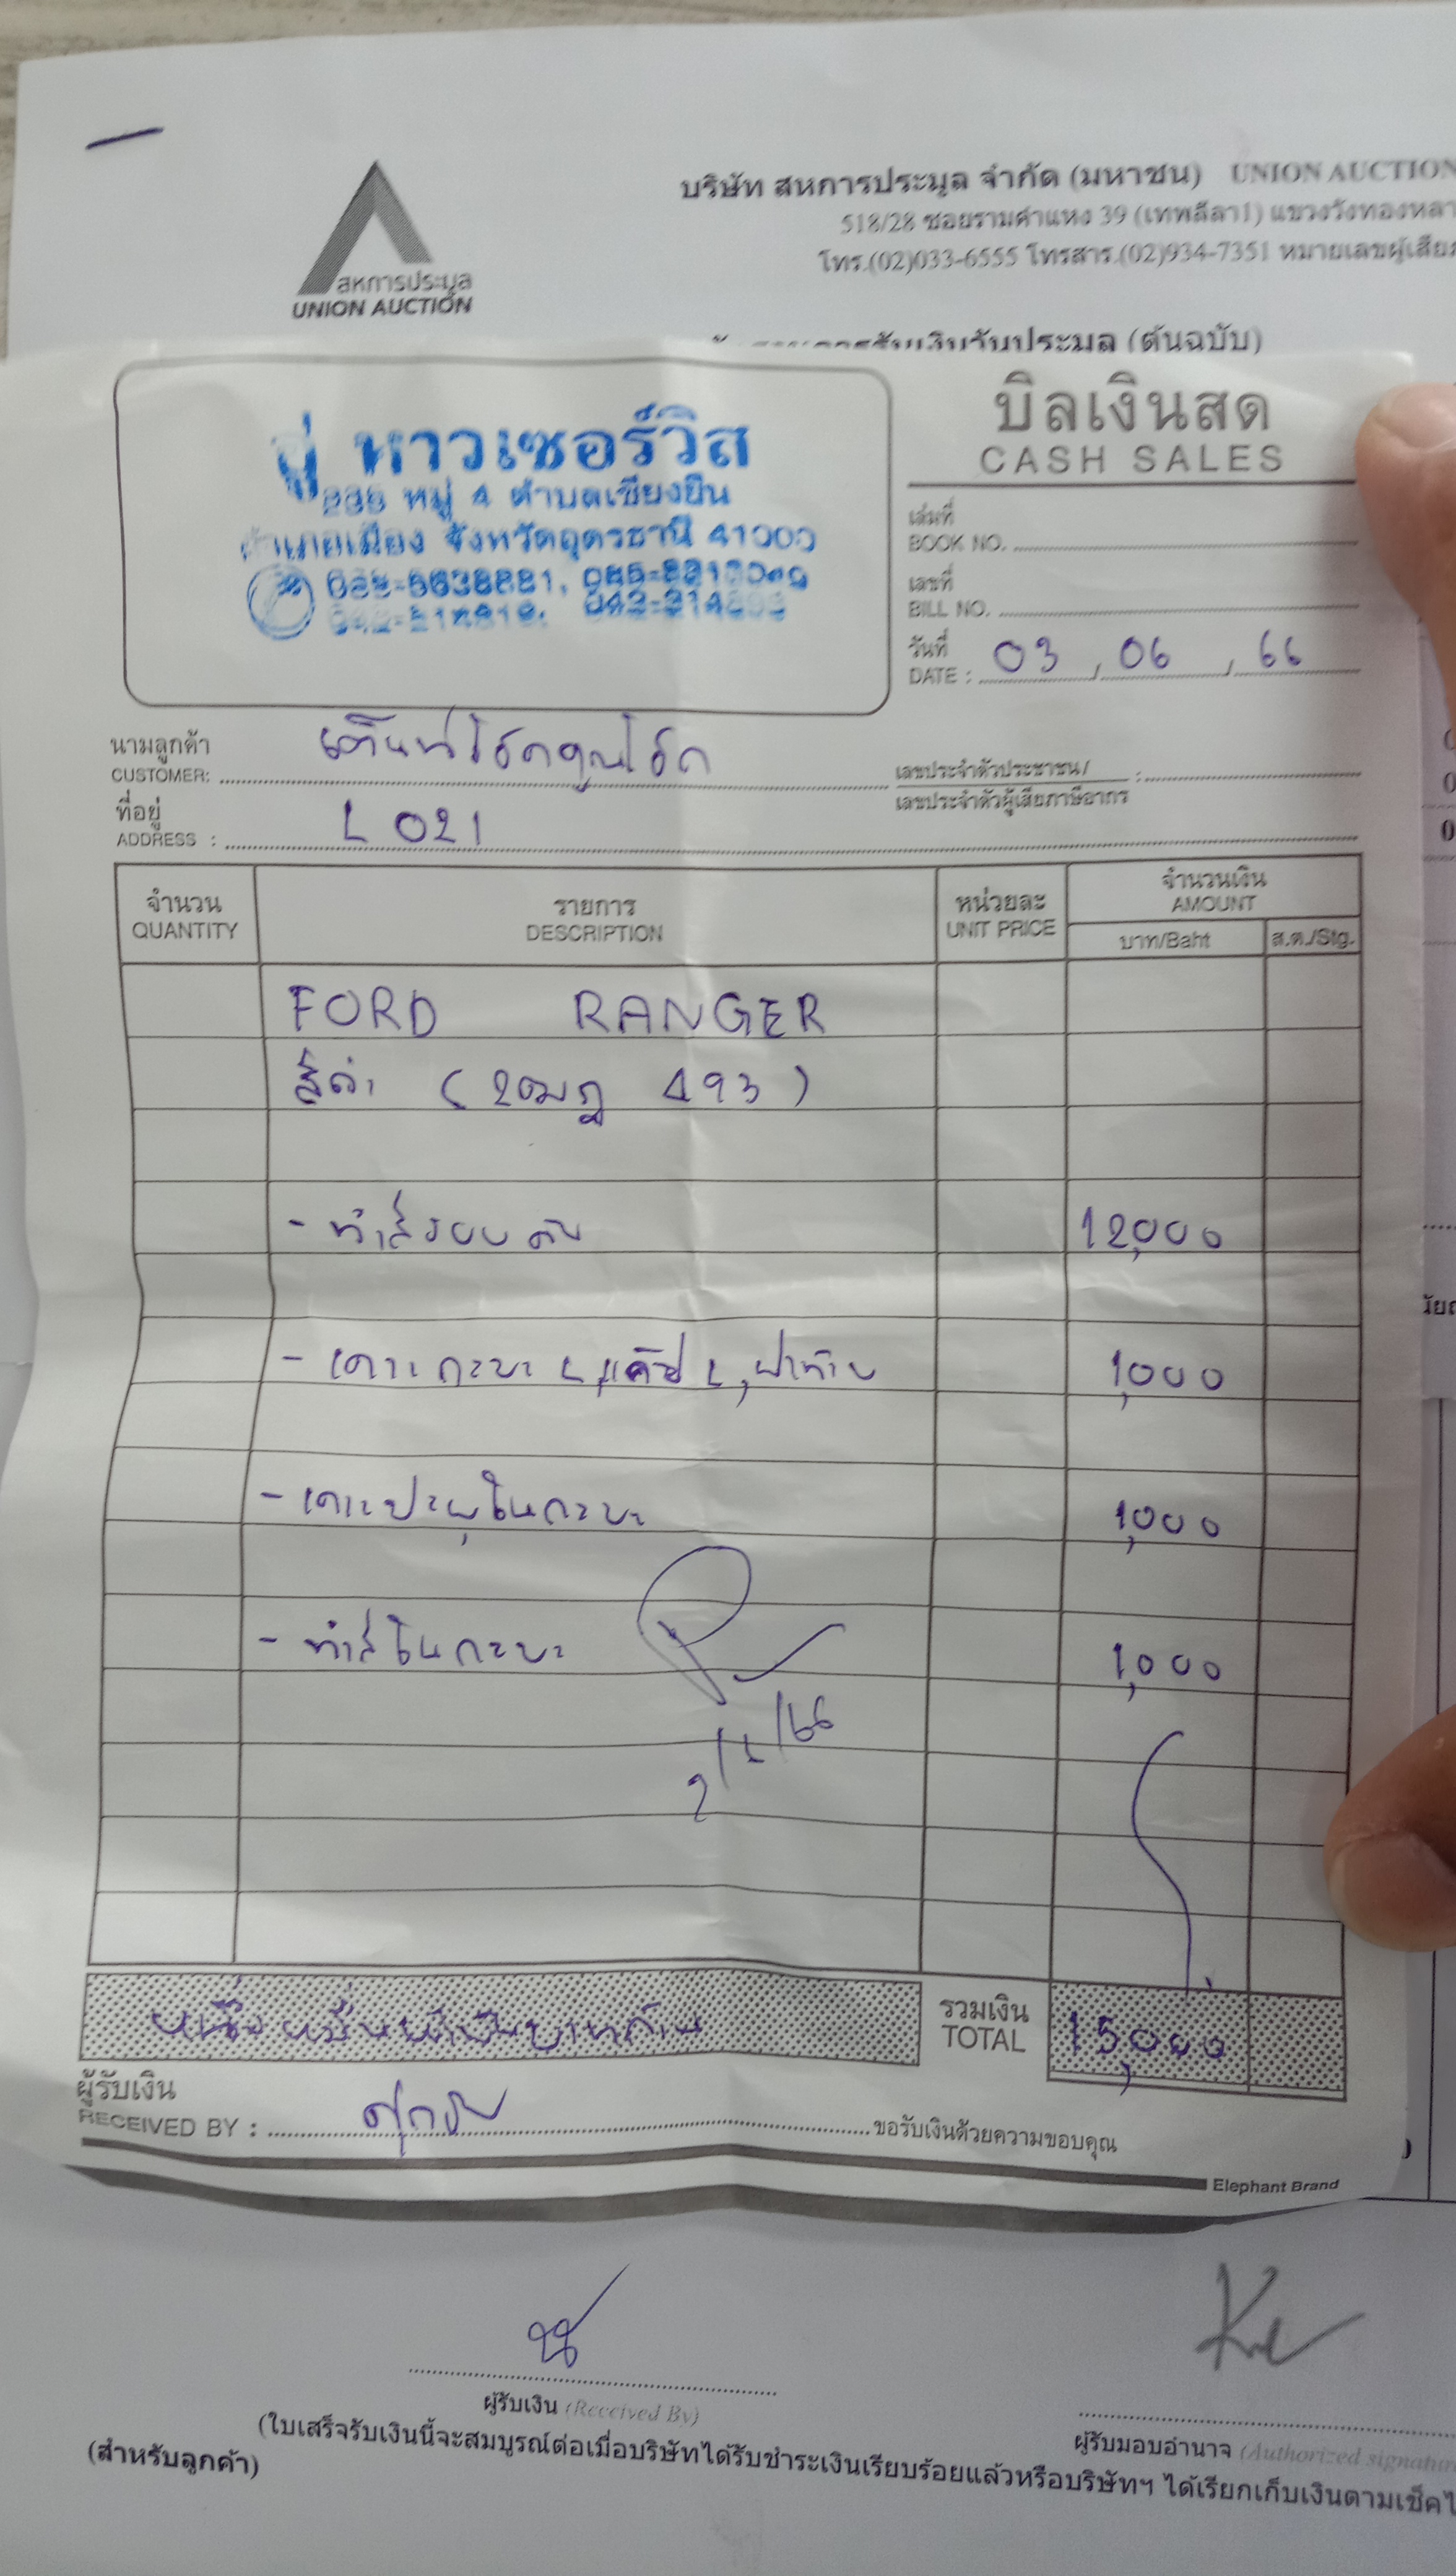 สหการประมูล
UNION AUCTION
บริษัท สหการประมูล จำกัด (มหาชน) UNION AUCTION
518/28 ซอยรามคำแหง 39 (เทพลีลา1) แขวงวังทองหลา
โทร.(02)033-6555 โทรสาร.(02)934-7351 หมายเลขผู้เสีย
(ต้นฉบับ)
อู่ หาวเซอร์วิส
หมู่ 4 ตำบลเชียงยืน
อำเภอเมือง จังหวัดอุดรธานี 41000
บิลเงินสด
CASH SALES
เล่มที่
BOOK NO.
เลขที่
BILL NO.
วันที่
DATE : 03 / 06 / 66
นามลูกค้า
CUSTOMER: เต็นท์โชคคูณโชค
เลขประจำตัวประชาชน/
เลขประจำตัวผู้เสียภาษีอากร
ที่อยู่
ADDRESS : L 021
จำนวน
QUANTITY
รายการ
DESCRIPTION
หน่วยละ
UNIT PRICE
จำนวนเงิน
AMOUNT
บาท/Baht ส.ต./Stg.
FORD RANGER
สีดำ (2ฒฎ 493)
- ทำสีรอบคัน 12,000
- เคาะกะบะ L, แค๊ป L, ฝาท้าย 1,000
- เคาะปะผุในกะบะ 1,000
- ทำสีในกะบะ 1,000
หนึ่งหมื่นห้าพันบาทถ้วน
รวมเงิน
TOTAL 15,000
ผู้รับเงิน
RECEIVED BY :
ขอรับเงินด้วยความขอบคุณ
Elephant Brand
ผู้รับเงิน (Received By)
ผู้รับมอบอำนาจ (Authorized signature
(ใบเสร็จรับเงินนี้จะสมบูรณ์ต่อเมื่อบริษัทได้รับชำระเงินเรียบร้อยแล้วหรือบริษัทฯ ได้เรียกเก็บเงินตามเช็คไ
(สำหรับลูกค้า)